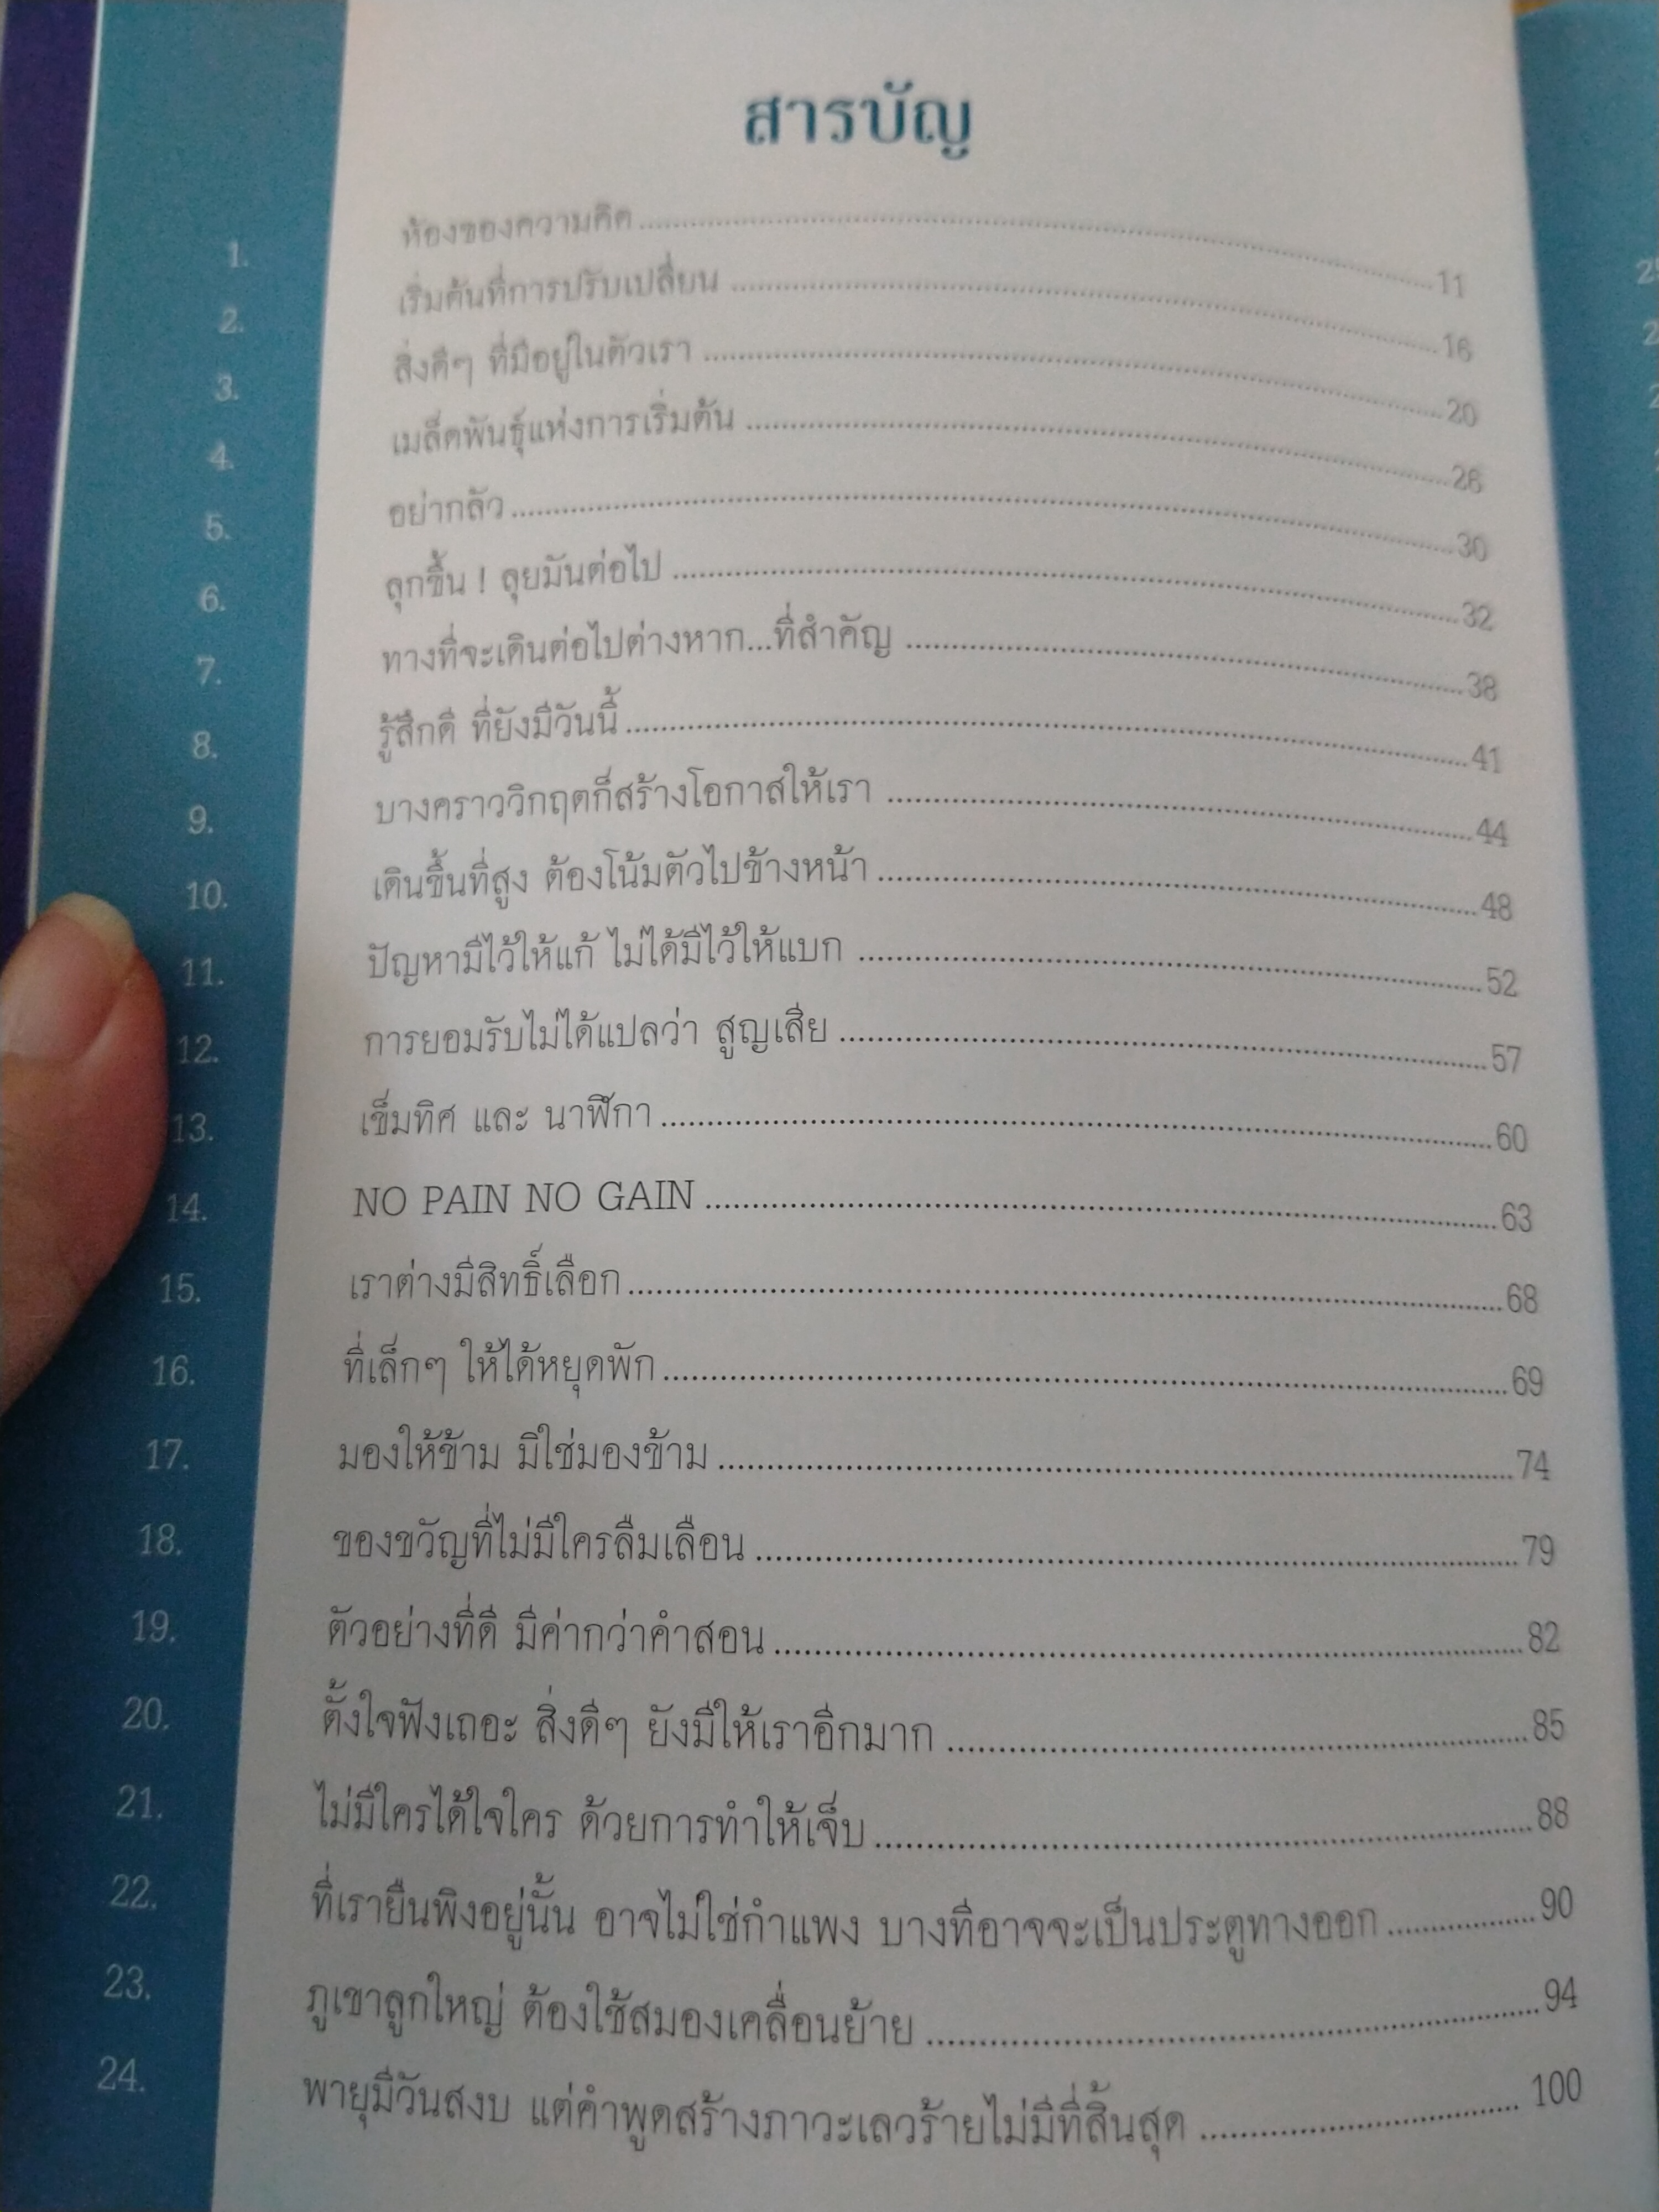 สารบัญ
1. ห้องของความคิด 11
2. เริ่มต้นที่การปรับเปลี่ยน 16
3. สิ่งดีๆ ที่มีอยู่ในตัวเรา 20
4. เมล็ดพันธุ์แห่งการเริ่มต้น 26
5. อย่ากลัว 30
6. ลุกขึ้น ! ลุยมันต่อไป 32
7. ทางที่จะเดินต่อไปต่างหาก...ที่สำคัญ 38
8. รู้สึกดี ที่ยังมีวันนี้ 41
9. บางคราววิกฤตก็สร้างโอกาสให้เรา 44
10. เดินขึ้นที่สูง ต้องโน้มตัวไปข้างหน้า 48
11. ปัญหามีไว้ให้แก้ ไม่ได้มีไว้ให้แบก 52
12. การยอมรับไม่ได้แปลว่า สูญเสีย 57
13. เข็มทิศ และ นาฬิกา 60
14. NO PAIN NO GAIN 63
15. เราต่างมีสิทธิ์เลือก 68
16. ที่เล็กๆ ให้ได้หยุดพัก 69
17. มองให้ข้าม มิใช่มองข้าม 74
18. ของขวัญที่ไม่มีใครลืมเลือน 79
19. ตัวอย่างที่ดี มีค่ากว่าคำสอน 82
20. ตั้งใจฟังเถอะ สิ่งดีๆ ยังมีให้เราอีกมาก 85
21. ไม่มีใครได้ใจใคร ด้วยการทำให้เจ็บ 88
22. ที่เรายืนพิงอยู่นั้น อาจไม่ใช่กำแพง บางทีอาจจะเป็นประตูทางออก 90
23. ภูเขาลูกใหญ่ ต้องใช้สมองเคลื่อนย้าย 94
24. พายุมีวันสงบ แต่คำพูดสร้างภาวะเลวร้ายไม่มีที่สิ้นสุด 100